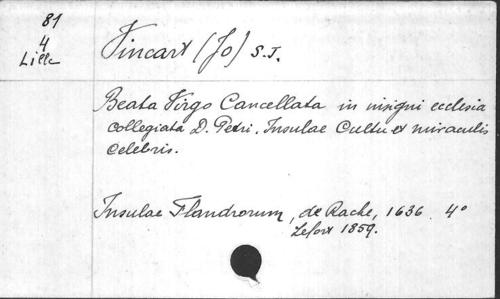 81
4
Lille
Vincart (Jo) S.J.
Beata Virgo Cancellata in insigni ecclesia
collegiata D. Petri. Insulae Cultu et miraculis
celebris.
Insulae Flandrorum, de Rache, 1636. 4º
Lefort 1859.